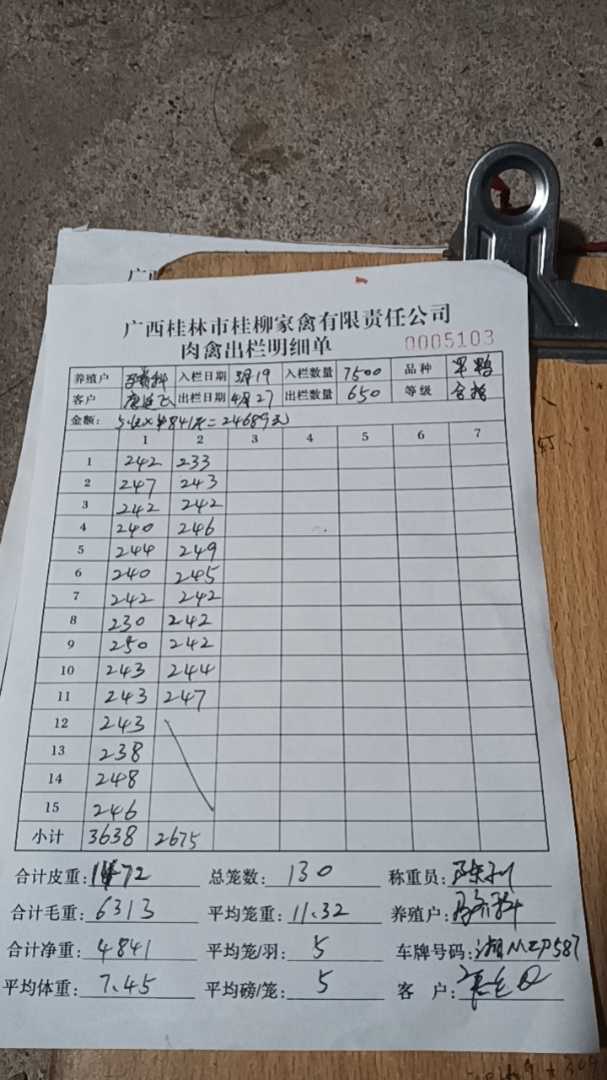 广西桂林市桂柳家禽有限责任公司
肉禽出栏明细单 0005103
养殖户 入栏日期 3月19 入栏数量 7500 品种
客户 出栏日期 4月27 出栏数量 650 等级 合格
金额: 841斤=24689元
1 2 3 4 5 6 7
1 242 233
2 247 243
3 242 242
4 240 246
5 244 249
6 240 245
7 242 242
8 230 242
9 250 242
10 243 244
11 243 247
12 243
13 238
14 248
15 246
小计 3638 2675
合计皮重: 1472 总笼数: 130 称重员:
合计毛重: 6313 平均笼重: 11.32 养殖户:
合计净重: 4841 平均笼/羽: 5 车牌号码: 湘MZP587
平均体重: 7.45 平均磅/笼: 5 客 户: